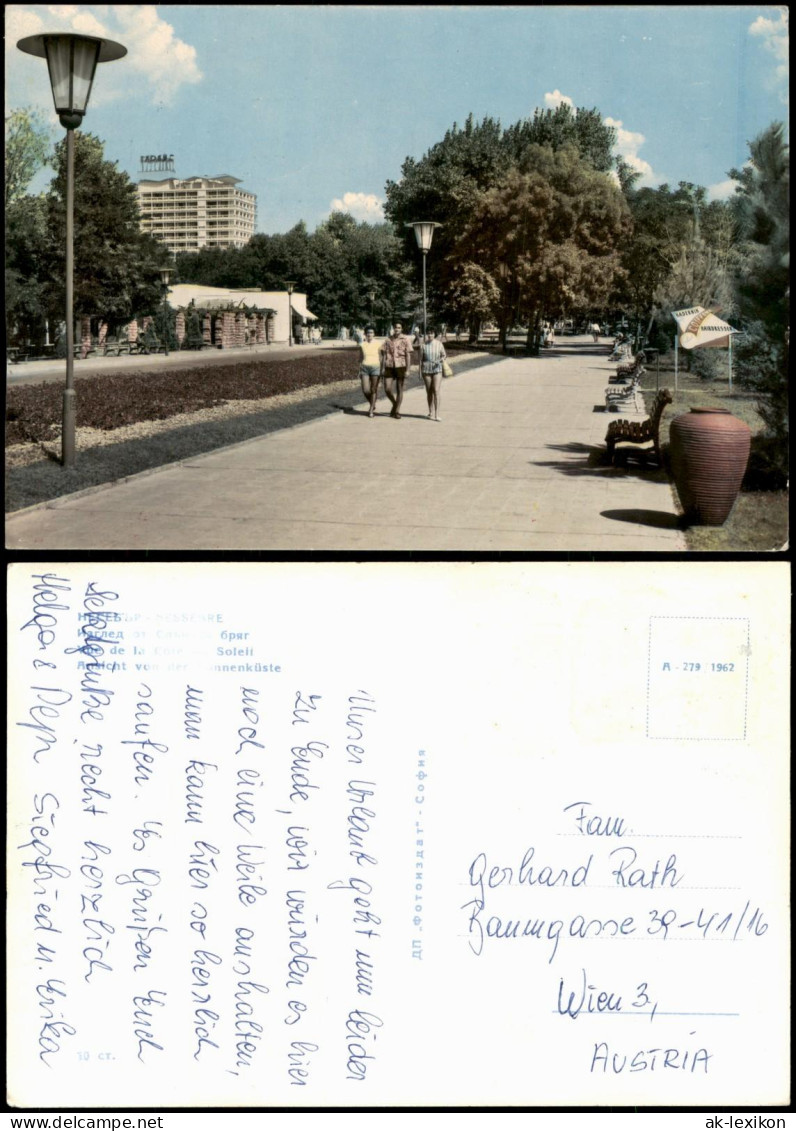 НЕСЕБЪР - NESSEBRE
Изглед от Слънчев бряг
Vue de la Côte du Soleil
Ansicht von der Sonnenküste
A - 279 / 1962
ДП „Фотоиздат" - София
10 ст.
Unser Urlaub geht nun leider
zu Ende, wir würden es hier
noch eine Weile aushalten,
man kann hier so herrlich
saufen. Es grüßen Euch
recht herzlich
Helga & Pepi Siegfried u. Erika
Fam.
Gerhard Rath
Baumgasse 39-41/16
Wien 3,
AUSTRIA
ak-lexikon.de
ak-lexikon